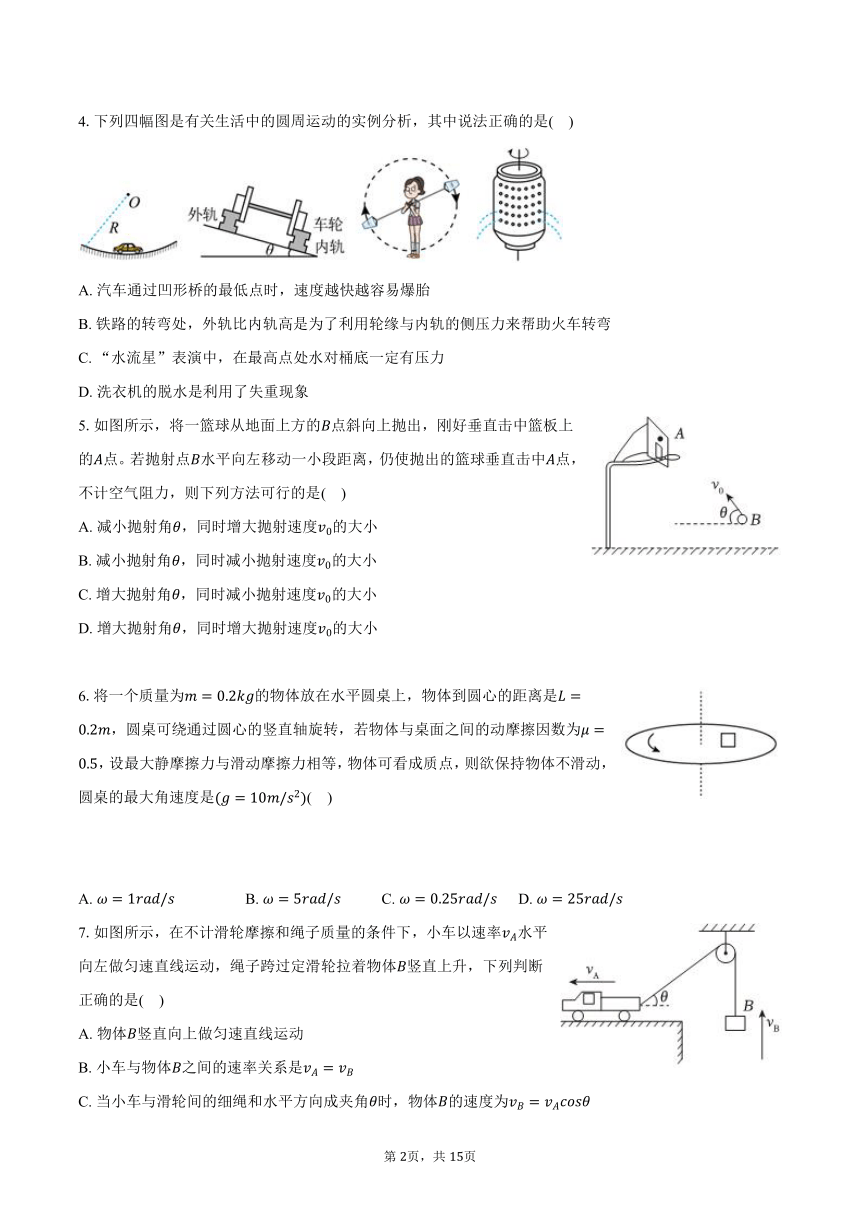 4. 下列四幅图是有关生活中的圆周运动的实例分析，其中说法正确的是(    )
O
R
外轨
车轮
内轨
θ
A. 汽车通过凹形桥的最低点时，速度越快越容易爆胎
B. 铁路的转弯处，外轨比内轨高是为了利用轮缘与内轨的侧压力来帮助火车转弯
C. “水流星”表演中，在最高点处水对桶底一定有压力
D. 洗衣机的脱水是利用了失重现象
5. 如图所示，将一篮球从地面上方的B点斜向上抛出，刚好垂直击中篮板上
的A点。若抛射点B水平向左移动一小段距离，仍使抛出的篮球垂直击中A点，
不计空气阻力，则下列方法可行的是(    )
A
v₀
θ
B
A. 减小抛射角θ，同时增大抛射速度v₀的大小
B. 减小抛射角θ，同时减小抛射速度v₀的大小
C. 增大抛射角θ，同时减小抛射速度v₀的大小
D. 增大抛射角θ，同时增大抛射速度v₀的大小
6. 将一个质量为m = 0.2kg的物体放在水平圆桌上，物体到圆心的距离是L =
0.2m，圆桌可绕通过圆心的竖直轴旋转，若物体与桌面之间的动摩擦因数为μ =
0.5，设最大静摩擦力与滑动摩擦力相等，物体可看成质点，则欲保持物体不滑动，
圆桌的最大角速度是(g = 10m/s²)(    )
A. ω = 1rad/s B. ω = 5rad/s C. ω = 0.25rad/s D. ω = 25rad/s
7. 如图所示，在不计滑轮摩擦和绳子质量的条件下，小车以速率v_A水平
向左做匀速直线运动，绳子跨过定滑轮拉着物体B竖直上升，下列判断
正确的是(    )
v_A
θ
B
v_B
A. 物体B竖直向上做匀速直线运动
B. 小车与物体B之间的速率关系是v_A = v_B
C. 当小车与滑轮间的细绳和水平方向成夹角θ时，物体B的速度为v_B = v_Acosθ
第 2页，共 15页